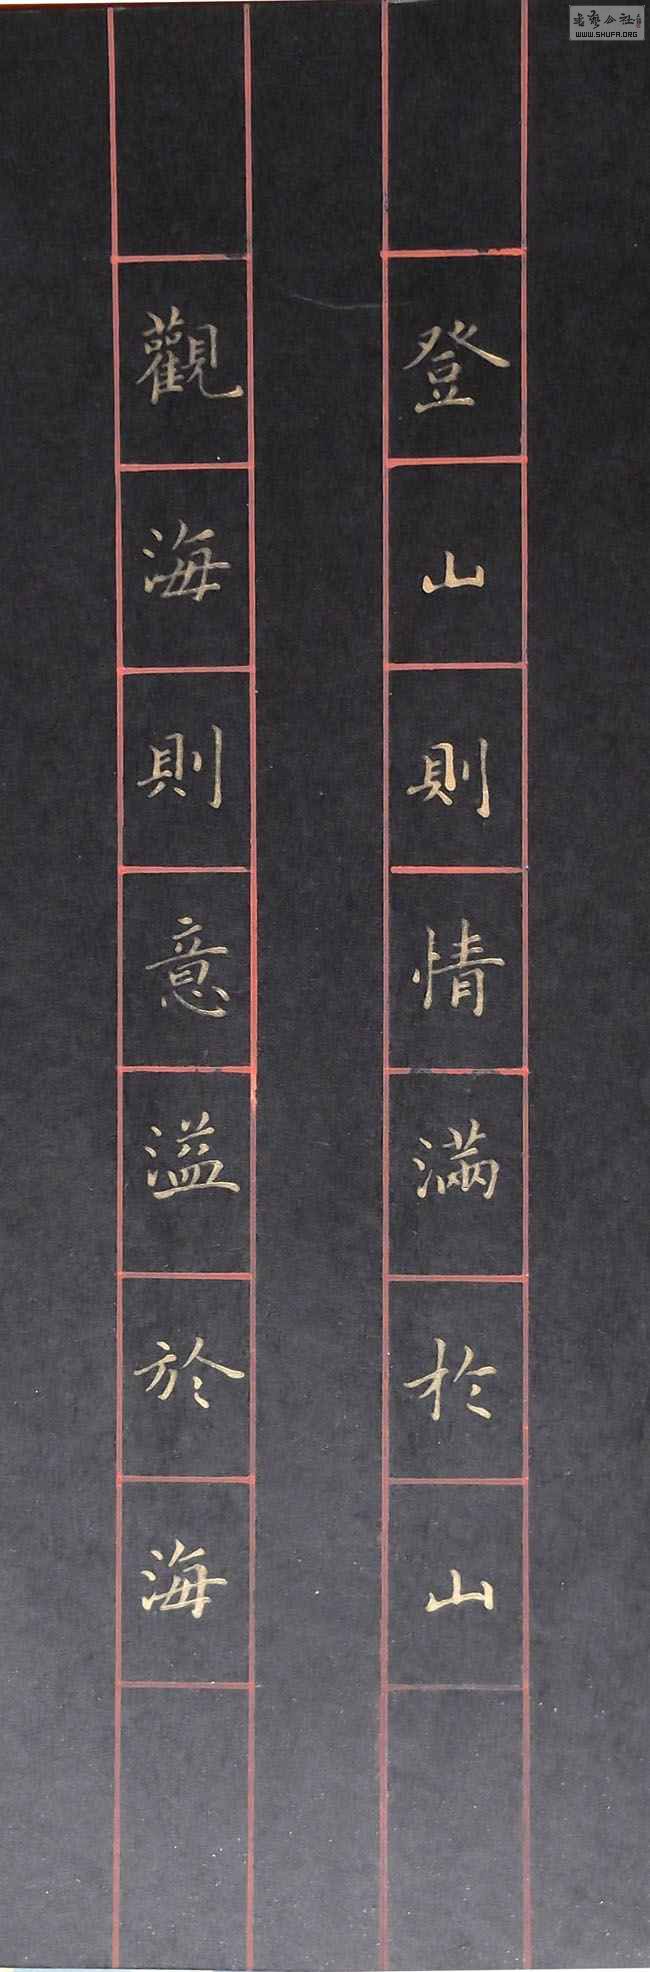 登山則情滿於山
觀海則意溢於海
WWW.SHUFA.ORG